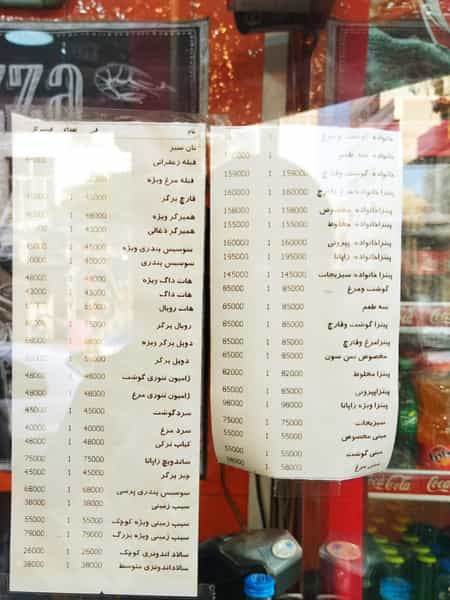 zza
نام
فی
تعداد
نان سیر
قبله زعفرانی
قبله مرغ ویژه
قارچ برگر 41000 1
همبرگر ویژه 1
همبرگر ذغالی 41000 1
سوسیس پنیری ویژه 45000 1 45000
سوسیس پنیری 40000 1 40000
هات داگ ویژه 48000 1 48000
هات داگ 43000 1 43000
هات رویال 1
رویال برگر 75000 1
دوبل برگر ویژه 1
دوبل برگر 1
ژامبون تنوری گوشت 48000 1 48000
ژامبون تنوری مرغ 48000 1 48000
سردگوشت 45000 1 45000
سرد مرغ 40000 1 40000
کباب ترکی 48000 1 48000
ساندویچ زاپاتا 75000 1 75000
چیز برگر 45000 1 45000
سوسیس پنیری پرسی 68000 1 68000
سیب زمینی 38000 1 38000
سیب زمینی ویژه کوچک 55000 1 55000
سیب زمینی ویژه بزرگ 79000 1 79000
سالاد اندونزی کوچک 26000 1 26000
سالاداندونزی متوسط 38000 1 38000
خانواده گوشت ومرغ 1
خانواده سه طعم 1
خانواده گوشت وقارچ 159000 1 159000
پیتزاخانواده مرغ وقارچ 160000 1 160000
پیتزاخانواده مخصوص 158000 1 158000
پیتزاخانواده مخلوط 155000 1 155000
پیتزاخانواده پپرونی 160000 1 160000
پیتزاخانواده زاپاتا 195000 1 195000
پیتزا خانواده سبزیجات 145000 1 145000
گوشت ومرغ 85000 1 85000
سه طعم 85000 1 85000
پیتزا گوشت وقارچ 85000 1 85000
پیتزامرغ وقارچ 85000 1 85000
مخصوص سن سون 85000 1 85000
پیتزا مخلوط 82000 1 82000
پیتزاپپرونی 85000 1 85000
پیتزا ویژه زاپاتا 98000 1 98000
سبزیجات 75000 1 75000
مینی مخصوص 55000 1 55000
مینی گوشت 55000 1 55000
مینی مرغ 58000 1 58000
Coca-Cola
Coca
Fanta